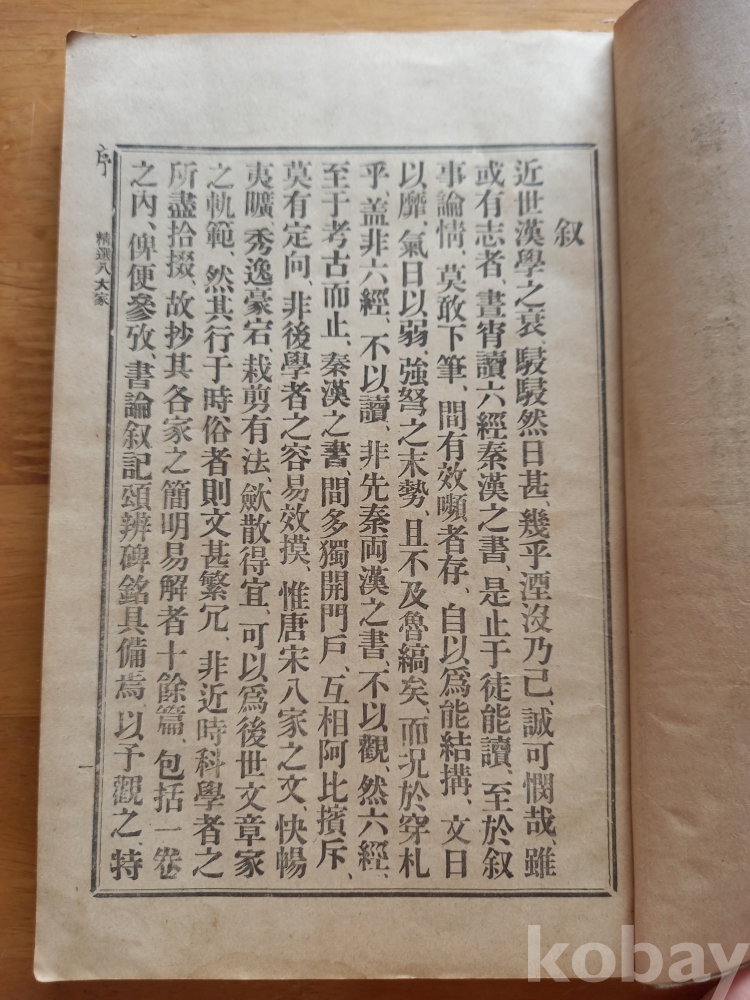 叙
近世漢學之衰、駸駸然日甚、幾乎湮沒乃已、誠可憫哉、雖
或有志者、晝宵讀六經秦漢之書、是止于徒能讀、至於叙
事論情、莫敢下筆、間有效嚬者存、自以爲能結搆、文日
以靡、氣日以弱、強弩之末勢、且不及魯縞矣、而况於穿札
乎、盖非六經、不以讀、非先秦両漢之書、不以觀、然六經、
至于考古而止、秦漢之書、間多獨開門戶、互相阿比擯斥、
莫有定向、非後學者之容易效摸、惟唐宋八家之文、快暢
夷曠、秀逸豪宕、栽剪有法、歛散得宜、可以爲後世文章家
之軌範、然其行于時俗者則文甚繁冗、非近時科學者之
所盡拾掇、故抄其各家之簡明易解者十餘篇、包括一卷
之內、俾便參攷、書論叙記頌辨碑銘具備焉、以予觀之、特
序
精選八大家
kobay